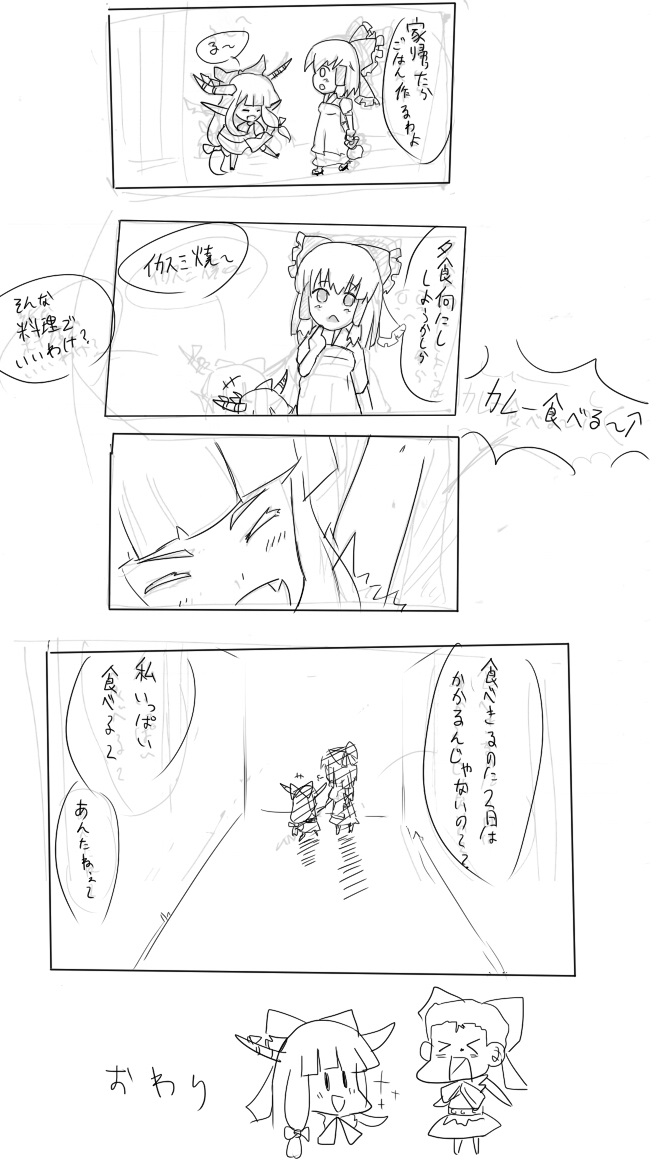 家帰ったら
ごはん作るわよ
る〜
夕食何にし
しようかしら
イカスミ焼〜
そんな
料理で
いいわけ？
カレー食べる〜↑
食べきるのに2日は
かかるんじゃないの？
私いっぱい
食べる〜
あんたねぇ〜
おわり